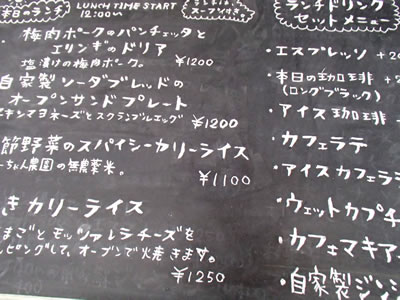 本日のランチ
LUNCH TIME START
12:00〜
スープ付き
・梅肉ポークのパンチェッタと
エリンギのドリア
塩漬けの梅肉ポーク。
¥1200
自家製ソーダブレッドの
オープンサンドプレート
チキンマヨネーズとスクランブルエッグ
¥1200
節野菜のスパイシーカリーライス
ーちゃん農園の無農薬米。
¥1100
きカリーライス
まごとモッツァレラチーズを
ッピングして、オーブンで焼きます。
¥1250
ランチドリンク
セットメニュー
・エスプレッソ +2
・本日の珈琲 +
(ロングブラック)
・アイス珈琲 +
・カフェラテ
・アイスカフェラテ
・ウェットカプチ
・カフェマキア
・自家製ジン